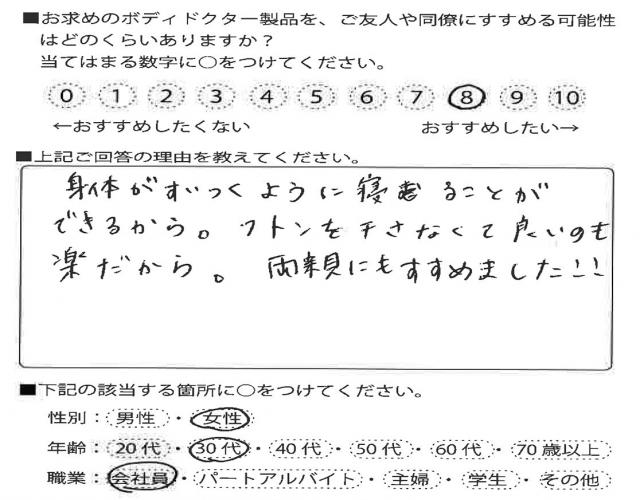 ■お求めのボディドクター製品を、ご友人や同僚にすすめる可能性
はどのくらいありますか？
当てはまる数字に○をつけてください。
0 1 2 3 4 5 6 7 8 9 10
←おすすめしたくない おすすめしたい→
■上記ご回答の理由を教えてください。
身体がすいつくように寝むることが
できるから。フトンを干さなくて良いのも
楽だから。両親にもすすめました!!
■下記の該当する箇所に○をつけてください。
性別：男性・女性
年齢：20代・30代・40代・50代・60代・70歳以上
職業：会社員・パートアルバイト・主婦・学生・その他